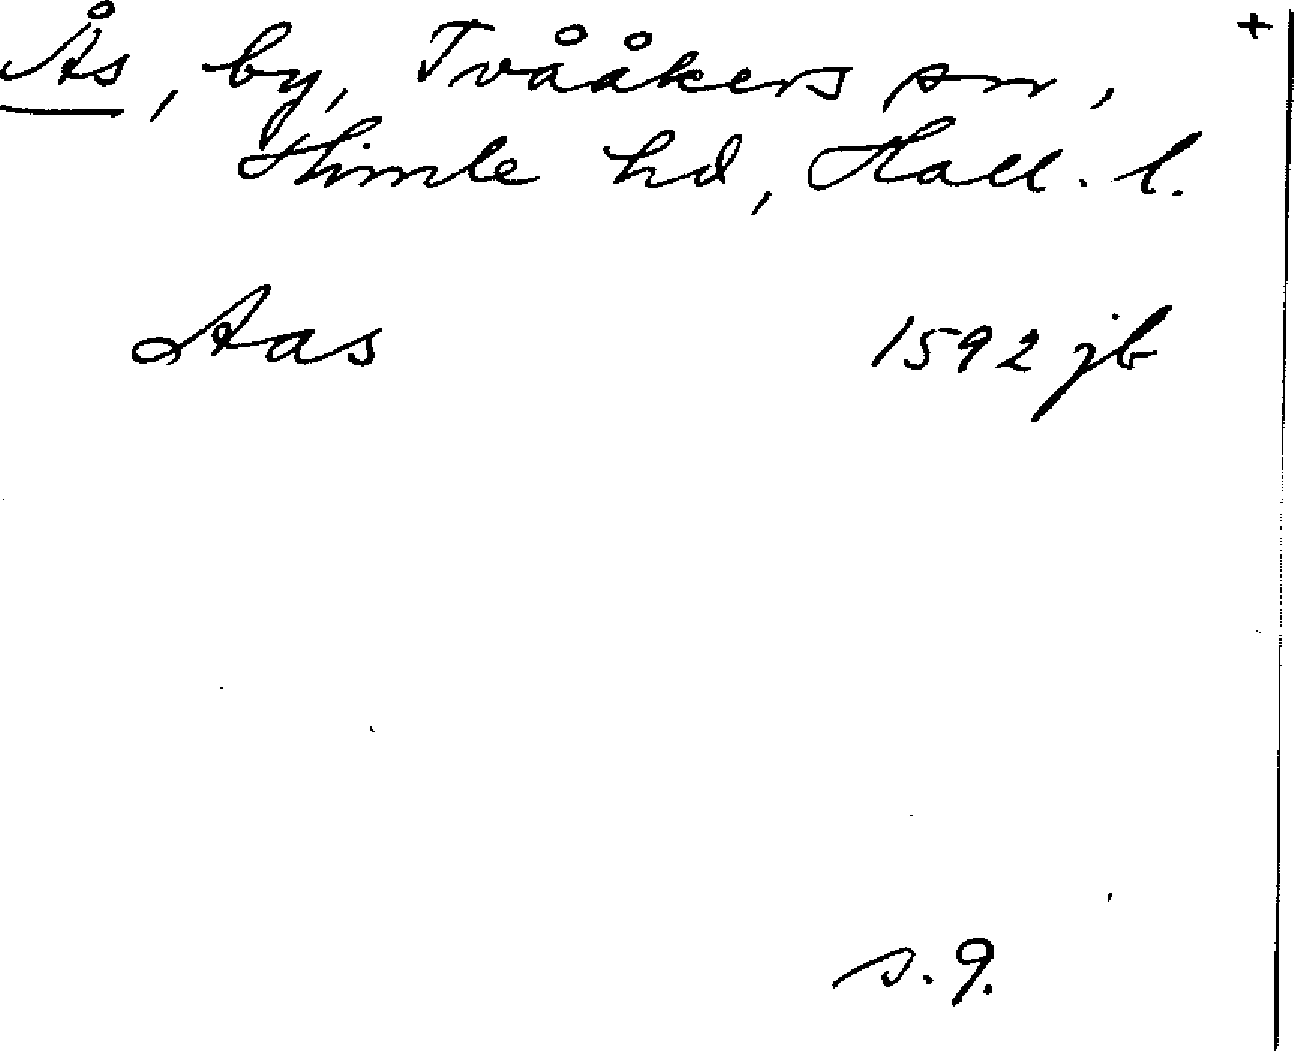 +
Ås, by, Tvååkers sn,
Himle hd, Hall. l.
Aas 1592 jb
s. 9.